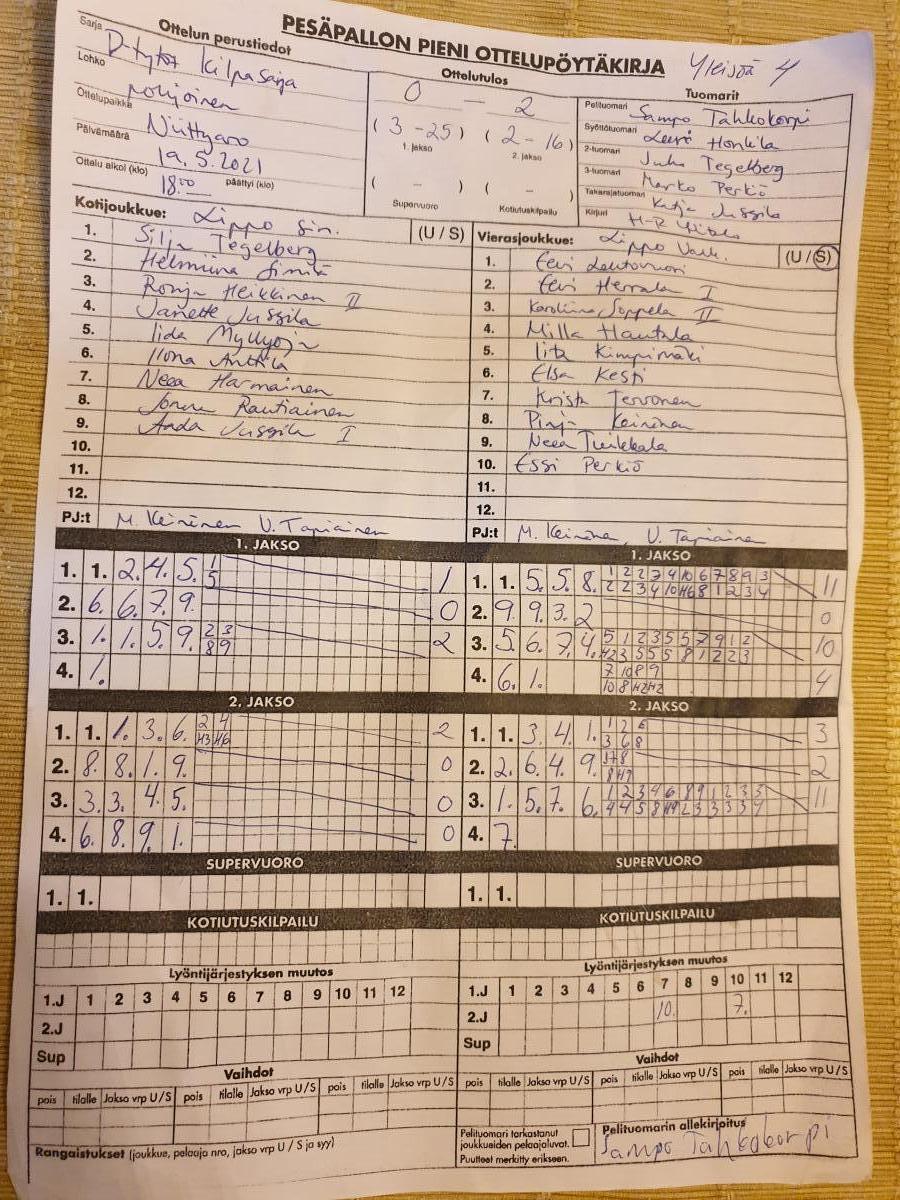 PESÄPALLON PIENI OTTELUPÖYTÄKIRJA
Yleisöä 4
Ottelun perustiedot
Sarja D-tytöt kilpasarja
Lohko pohjoinen
Ottelupaikka Niittyaro
Päivämäärä 19.5.2021
Ottelu alkoi (klo) 18.00 päättyi (klo)
Ottelutulos
0 - 2
(3 - 25) (2 - 16)
1. jakso 2. jakso
( - ) ( - )
Supervuoro Kotiutuskilpailu
Tuomarit
Pelituomari Sampo Tahkokorpi
Syöttötuomari Honkila
2-tuomari Juha Tegelberg
3-tuomari Marko Perkiö
Takarajatuomari Katja Jussila
Kirjuri H-R
Kotijoukkue: Lippo Sin. (U / S)
1. Silja Tegelberg
2. Helmiina
3. Ronja Heikkinen II
4. Janette Jussila
5. Iida Myllyoja
6. Ilona Anttila
7. Neea Harmainen
8. Rautiainen
9. Aada Jussila I
10.
11.
12.
PJ:t M. Keinänen V. Tapiainen
Vierasjoukkue: Lippo Valk. (U / S)
1. Eevi Lehtovuori
2. Eevi Herrala I
3. Karoliina Soppela II
4. Milla Hautala
5. Iita Kimpimäki
6. Elsa Kesti
7. Krista Tervonen
8. Pinja Keinänen
9. Neea Tuikkala
10. Essi Perkiö
11.
12.
PJ:t M. Keinänen, V. Tapiainen
1. JAKSO
1. 1. 2. 4. 5. 1 1
5
2. 6. 6. 7. 9. 0
3. 1. 1. 5. 9. 2 3 2
8 9
4. 1.
1. JAKSO
1. 1. 5. 5. 8. 1 2 2 3 4 10 6 7 8 9 3 11
2 2 3 4 10 H6 8 1 2 3 4
2. 9 9 3. 2 0
3. 5. 6. 7. 4. 5 1 2 3 5 5 7 9 1 2 10
H2 3 5 5 5 8 1 2 2 3
4. 6. 1. 7 10 8 9 4
10 8 H2 H2
2. JAKSO
1. 1. 1. 3. 6. 2 4 2
H3 H6
2. 8. 8. 1. 9. 0
3. 3. 3. 4. 5. 0
4. 6. 8. 9. 1. 0
2. JAKSO
1. 1. 3. 4. 1. 1 2 6 3
3 6 8
2. 2. 6. 4. 9. 2
3. 1. 5. 7. 6. 1 2 3 4 6 8 9 1 2 3 3 11
4 4 5 8 H9 2 3 3 3 3 4
4. 7.
SUPERVUORO
1. 1.
SUPERVUORO
1. 1.
KOTIUTUSKILPAILU
KOTIUTUSKILPAILU
Lyöntijärjestyksen muutos
1.J 1 2 3 4 5 6 7 8 9 10 11 12
2.J
Sup
Lyöntijärjestyksen muutos
1.J 1 2 3 4 5 6 7 8 9 10 11 12
2.J 10. 7.
Sup
Vaihdot
pois tilalle Jakso vrp U/S pois tilalle Jakso vrp U/S pois tilalle Jakso vrp U/S
Vaihdot
pois tilalle Jakso vrp U/S pois tilalle Jakso vrp U/S pois tilalle Jakso vrp U/S
Rangaistukset (joukkue, pelaaja nro, jakso vrp U / S ja syy)
Pelituomari tarkastanut
joukkueiden pelaajaluvat.
Puutteet merkitty erikseen.
Pelituomarin allekirjoitus
Sampo Tahkokorpi